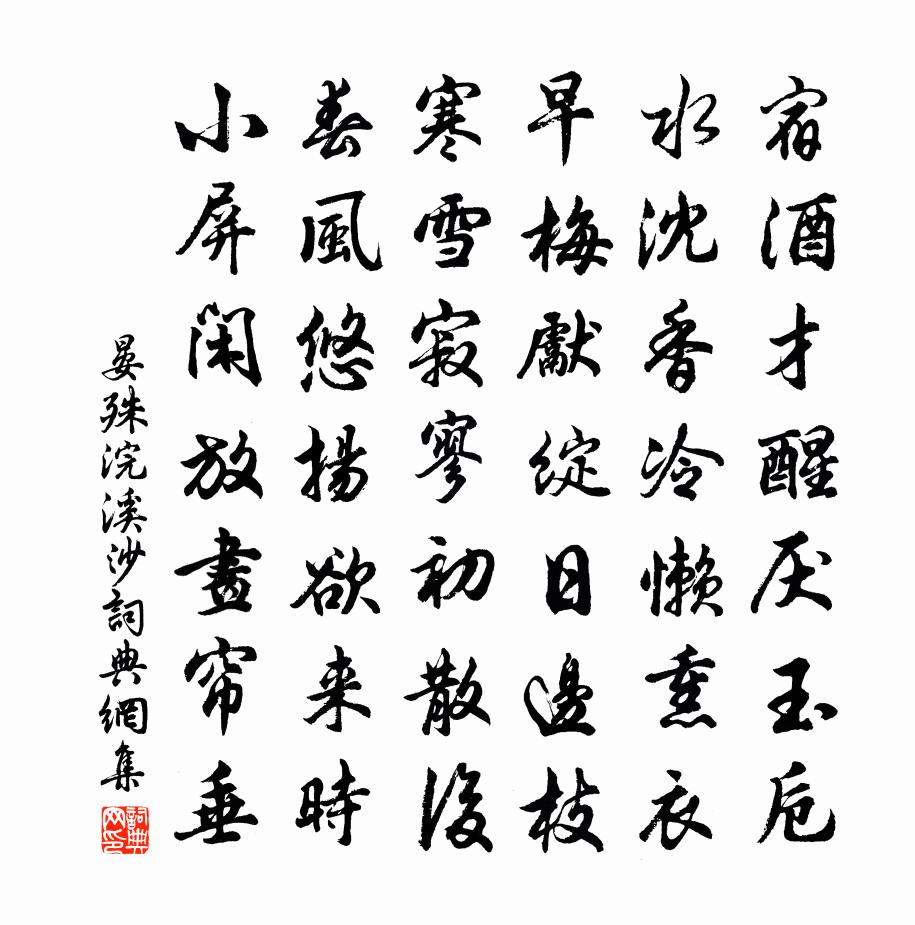 宿酒才醒厌玉卮
水沈香冷懒熏衣
早梅獻綻日邊枝
寒雪寂寥初散後
春風悠揚欲来時
小屏闲放畫帘垂
晏殊浣溪沙詞典網集
詞典网印